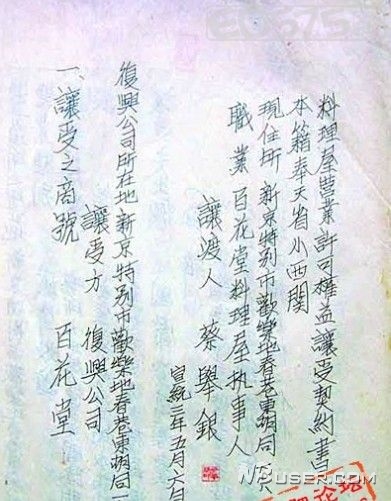 料理屋營業許可權益讓受契約書
本籍奉天省小西関
現住所 新京特別市歡樂地春巷東胡同
職業百花堂料理屋执事人
讓渡人 蔡舉銀
宣統三年五月六日
復興公司所在地新京特別市歡樂地春巷東胡同一
讓受方 復興公司
一、讓受之商號 百花堂